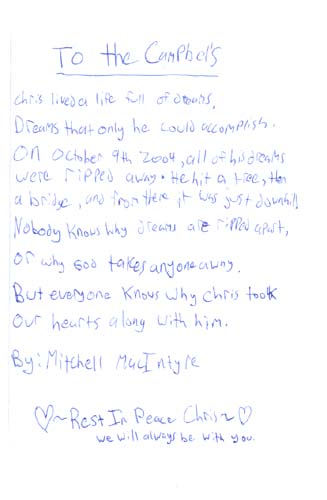 To the Campbel's
Chris lived a life full of dreams,
Dreams that only he could accomplish.
On October 9th 2004, all of his dreams
were ripped away. He hit a tree, then
a bridge, and from there it was just downhill,
Nobody knows why dreams are ripped apart,
or why God takes anyone away.
But everyone knows why Chris took
our hearts along with him.
By: Mitchell MacIntyre
♡~Rest In Peace Chris~♡
we will always be with you.